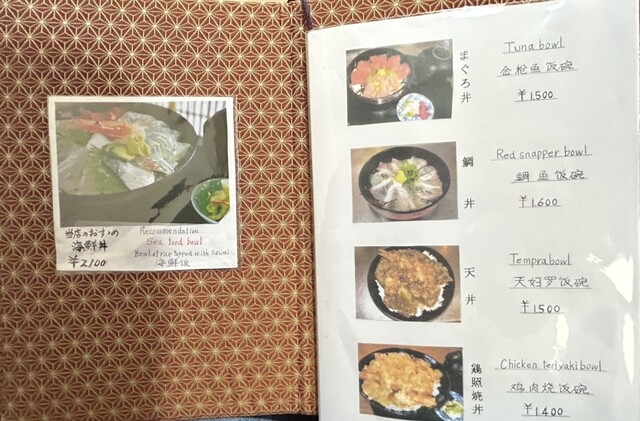 当店のおすすめ
海鮮丼
¥2100
Recommendation
Sea food bowl
Bowl of rice topped with
海鲜饭
まぐろ丼
Tuna bowl
金枪鱼饭碗
¥1.500
鯛丼
Red snapper bowl
鲷鱼饭碗
¥1.600
天丼
Tempra bowl
天妇罗饭碗
¥1500
鶏照焼丼
Chicken teriyaki bowl
鸡肉烧饭碗
¥1.400